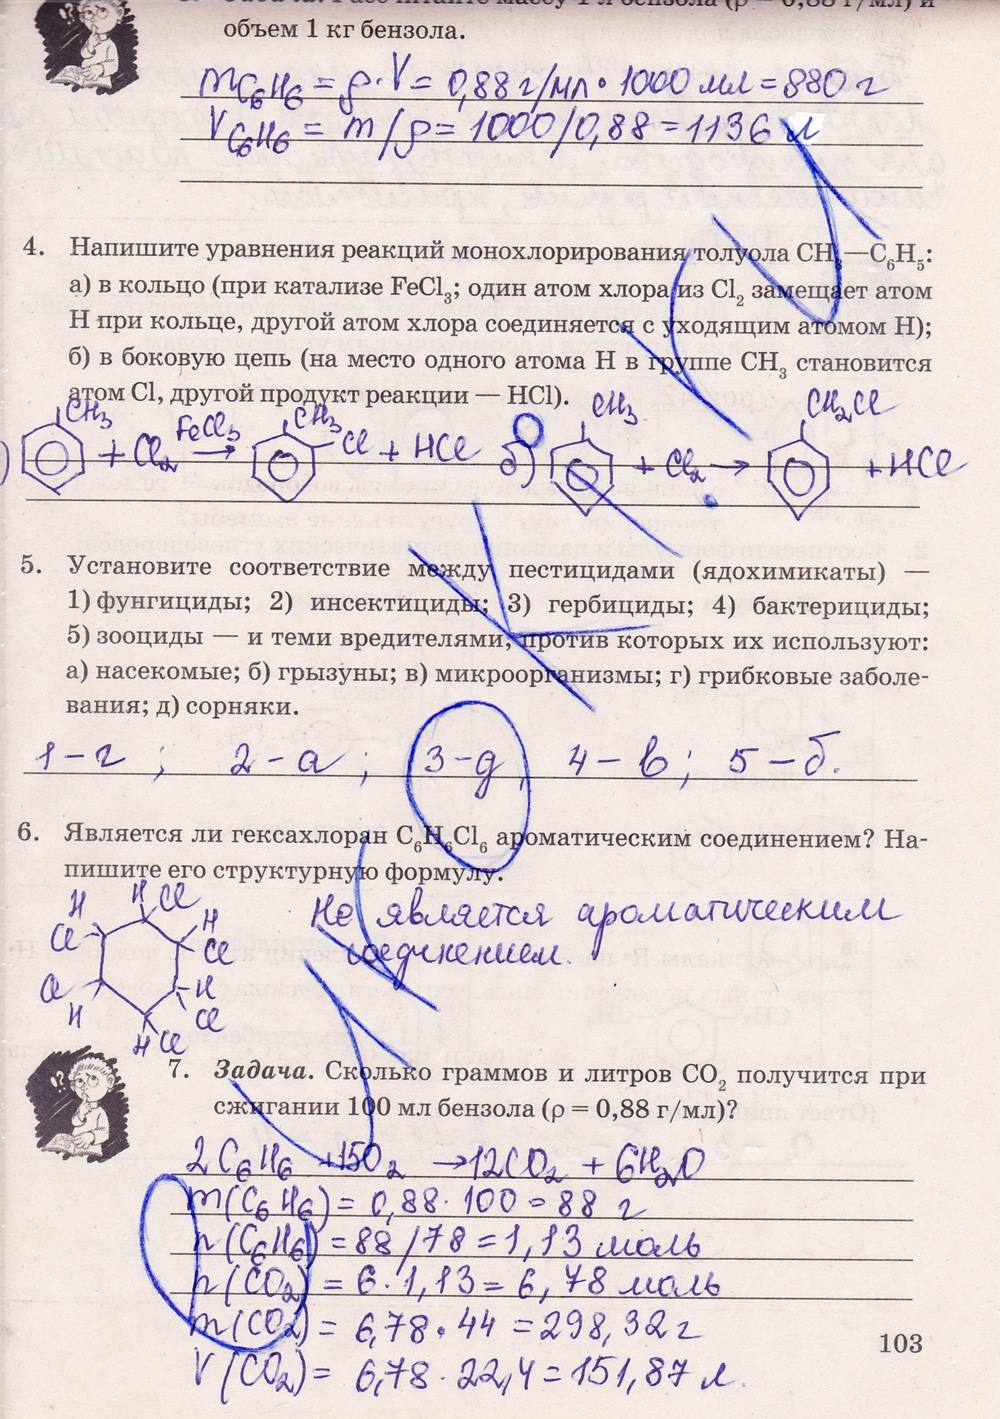 объем 1 кг бензола.
mC₆H₆ = ρ·V = 0,88 г/мл · 1000 мл = 880 г
VC₆H₆ = m/ρ = 1000/0,88 = 1136 л
4. Напишите уравнения реакций монохлорирования толуола CH₃—C₆H₅:
а) в кольцо (при катализе FeCl₃; один атом хлора из Cl₂ замещает атом
H при кольце, другой атом хлора соединяется с уходящим атомом H);
б) в боковую цепь (на место одного атома H в группе CH₃ становится
атом Cl, другой продукт реакции — HCl).
CH₃ + Cl₂ FeCl₃ → CH₃ Cl + HCl б) CH₃ + Cl₂ → CH₂Cl + HCl
5. Установите соответствие между пестицидами (ядохимикаты) —
1) фунгициды; 2) инсектициды; 3) гербициды; 4) бактерициды;
5) зооциды — и теми вредителями, против которых их используют:
а) насекомые; б) грызуны; в) микроорганизмы; г) грибковые заболе-
вания; д) сорняки.
1 – г ; 2 – а ; 3 – д, 4 – в; 5 – б.
6. Является ли гексахлоран C₆H₆Cl₆ ароматическим соединением? На-
пишите его структурную формулу.
H Cl
H H
Cl Cl
Cl H
H Cl
H Cl
Не является ароматическим
соединением.
7. Задача. Сколько граммов и литров CO₂ получится при
сжигании 100 мл бензола (ρ = 0,88 г/мл)?
2C₆H₆ + 15O₂ → 12CO₂ + 6H₂O
m(C₆H₆) = 0,88 · 100 = 88 г
n(C₆H₆) = 88/78 = 1,13 моль
n(CO₂) = 6 · 1,13 = 6,78 моль
m(CO₂) = 6,78 · 44 = 298,32 г
V(CO₂) = 6,78 · 22,4 = 151,87 л.
103